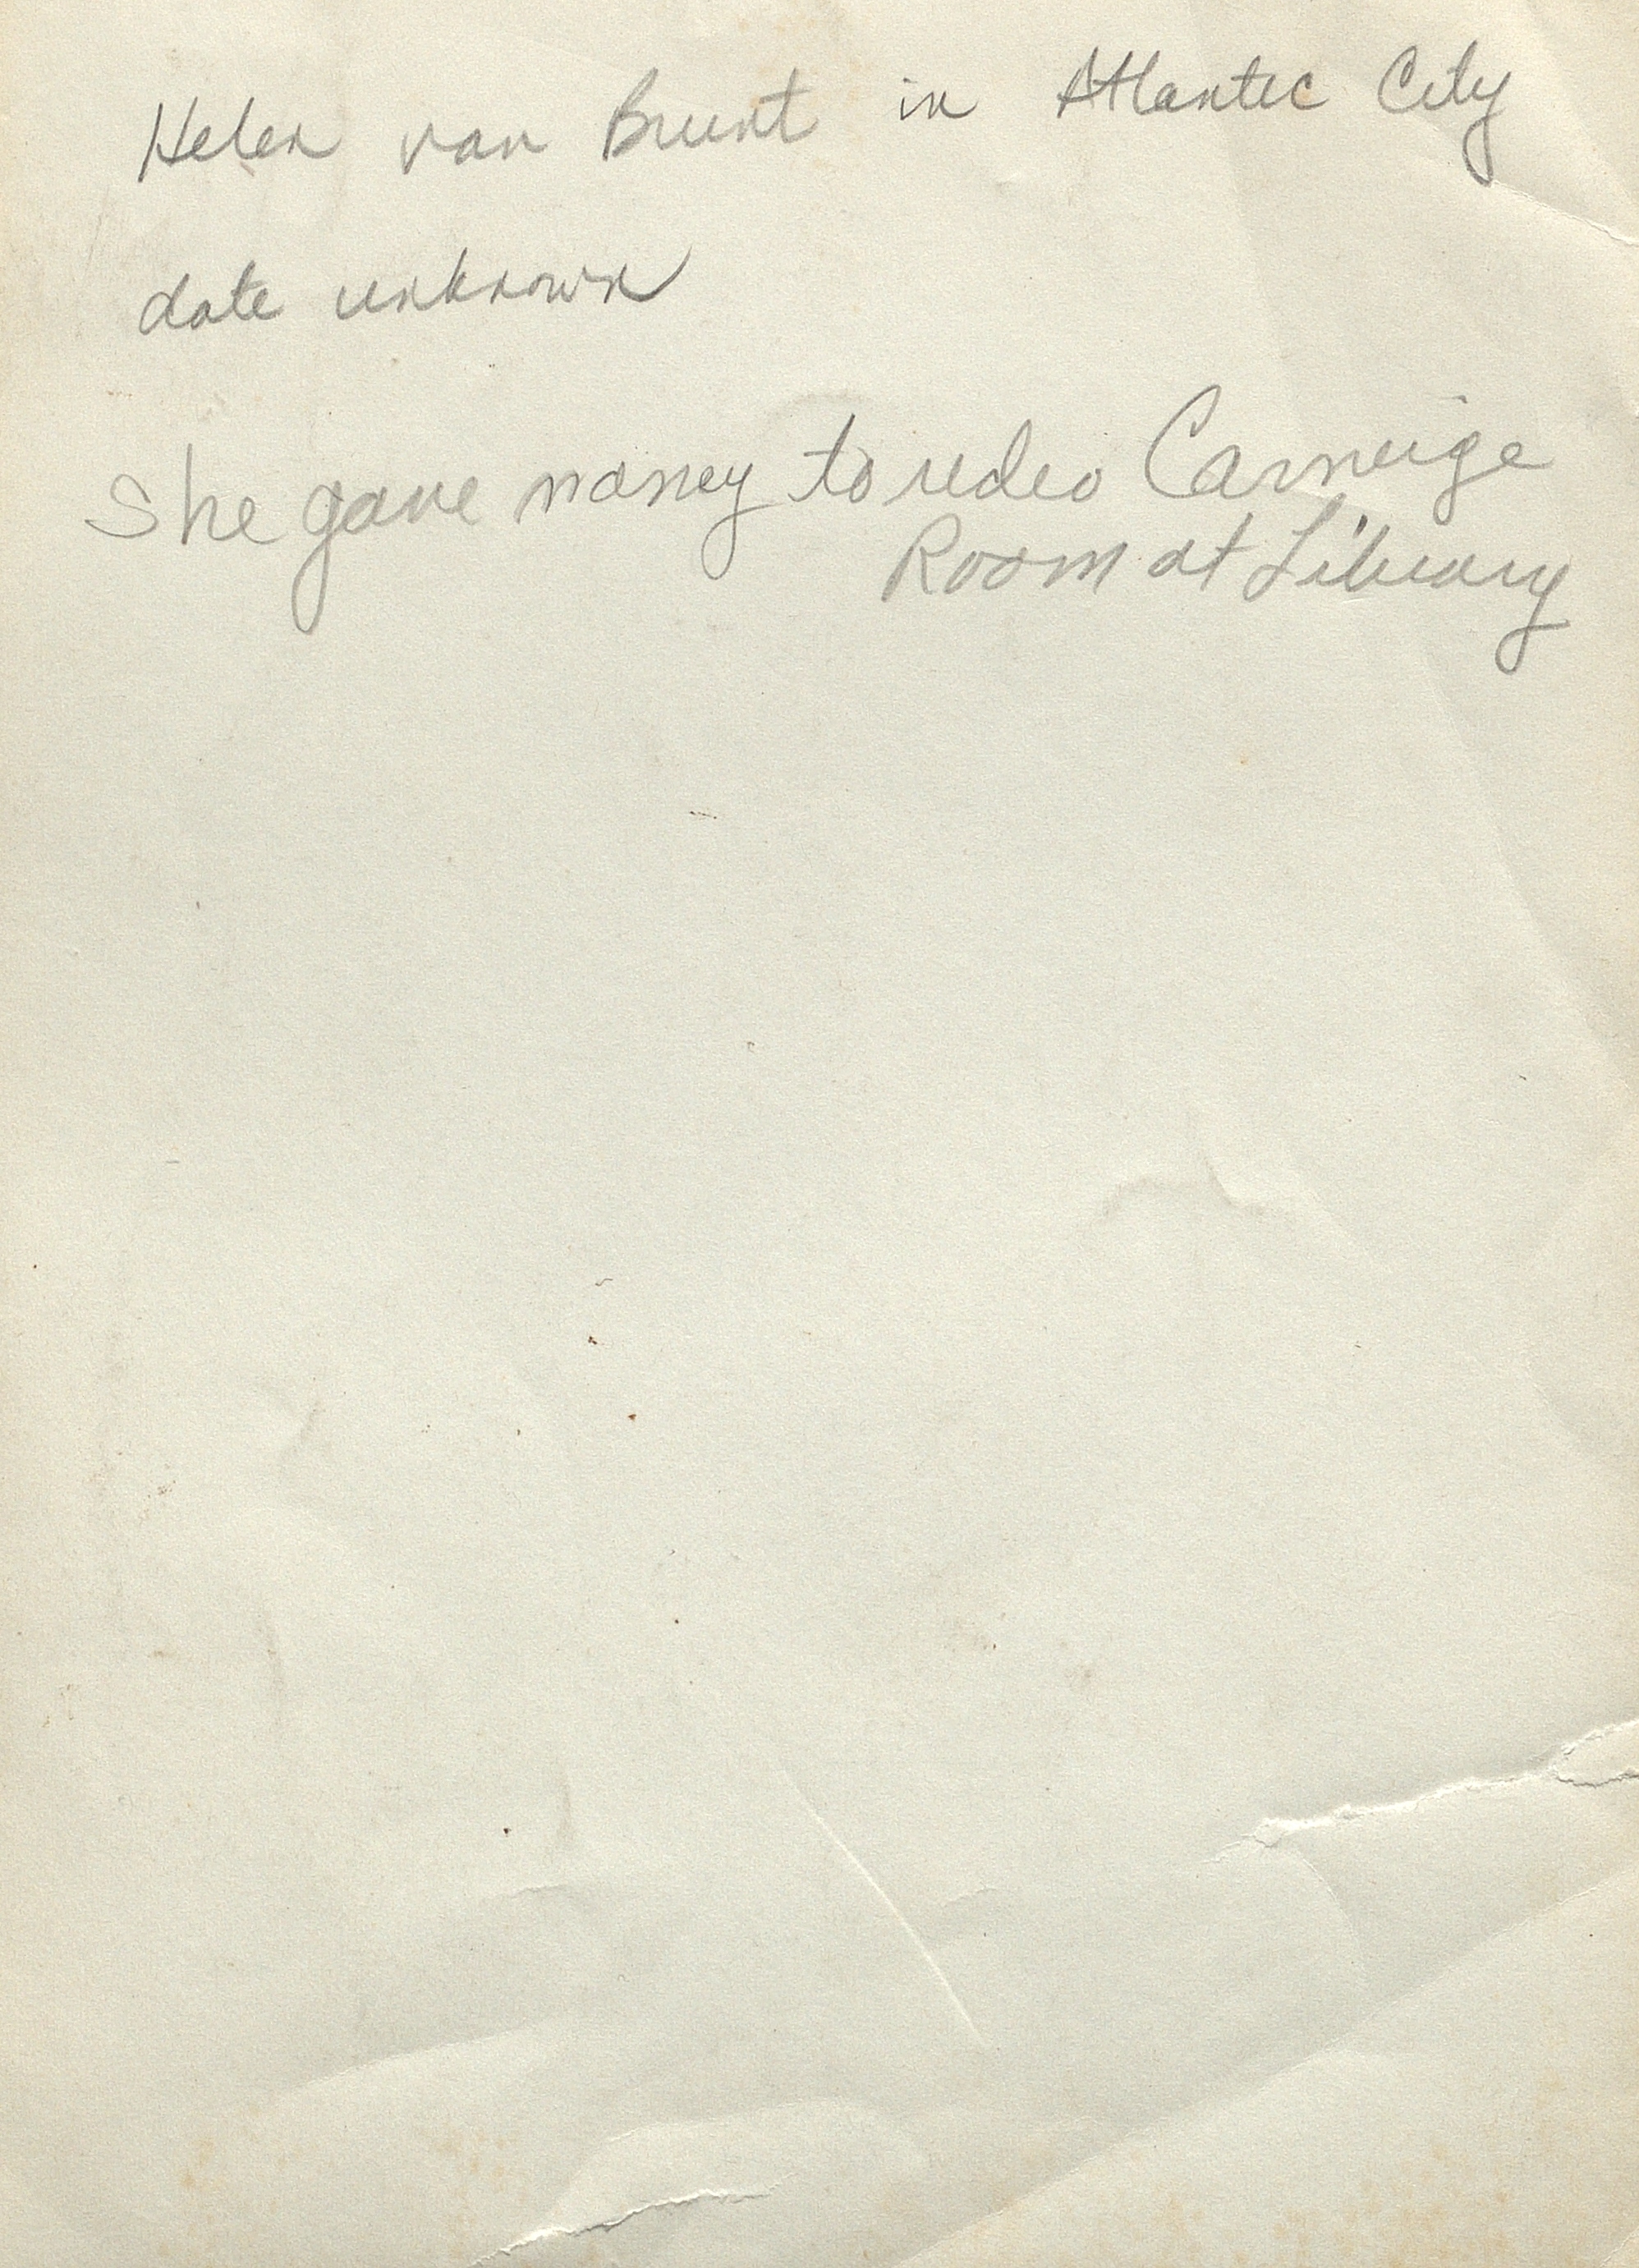 Helen van Brunt in Atlantic City
date unknown
She gave money to redeo Carneige
Room at Library